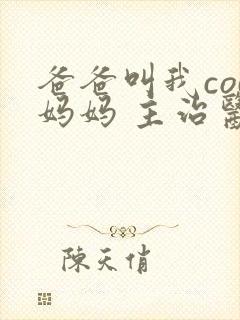 爸爸叫我co
妈妈 主治
陳天俏